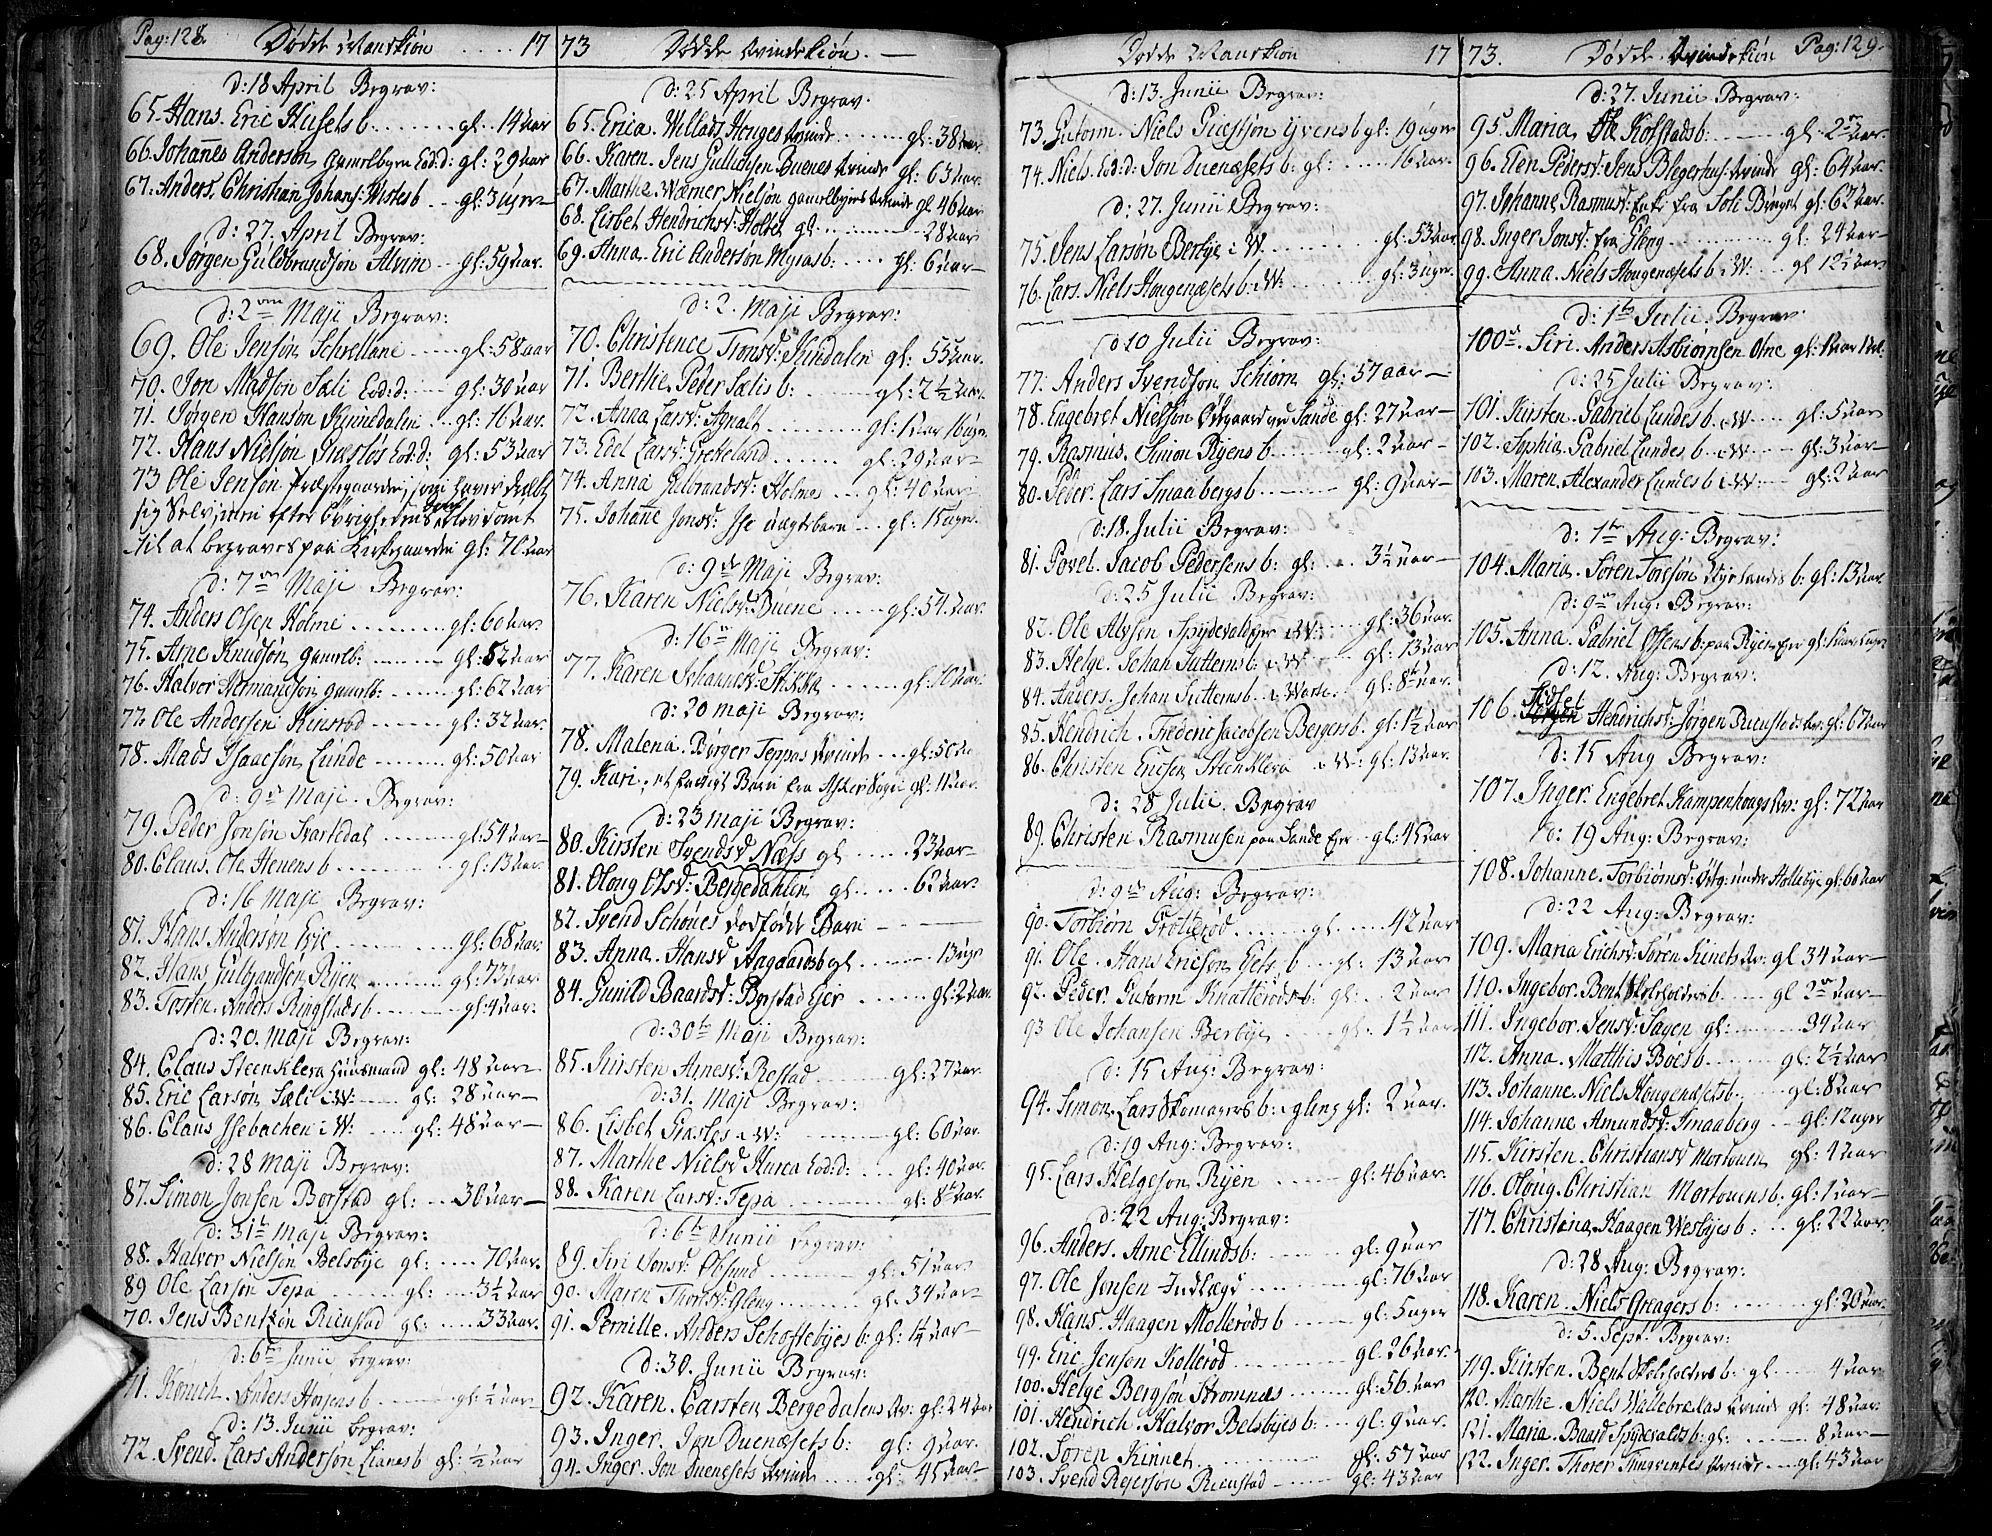 Pag: 128. Døde Mandkiøn .... 17
d: 18 April Begrav:
65. Hans. Eric Husets b. ....... gl. 14 aar
66. Johañes Anderson Gamelbyen Eod:d: gl: 29 aar
67. Anders. Christian Johans: Wistes b .. gl: 3 uger
d: 27. April Begrav:
68. Jørgen Guldbrandsøn Alvim ... gl: 59 aar.
d: 2den Maji Begrav:
69. Ole Jensøn Schrellane ..... gl: 58 aar
70. Jon Madsøn Sæli Eod:d: .... gl: 30 aar
71. Jørgen Hansøn Qvinedalen ... gl: 16 aar.
72. Hans Nielsøn Eod:d: gl: 53 aar
73 Ole Jensøn Præstegaarden, som haver dræbt
sig Selv, men efter Øvrighedens blev
til at begraves paa Kirkegaarden gl: 70 aar
d: 7de Maji Begrav:
74. Anders Olsen Holme ......... gl: 60 aar.
75. Arne Knudsøn Gamelb: ........ gl: 52 aar
76. Halvor Hermandsøn gamelb: ...... gl: 62 aar
77. Ole Andersen Kinstad ...... gl: 32 aar.
78. Mads Isaacsøn Lunde ........ gl: 50 aar
d: 9de Maji. Begrav:
79. Peder Jonsøn Svartedal ........ gl: 54 aar
80. Claus. Ole Henens b ......... gl: 13 aar.
d: 16 Maji Begrav:
81. Hans Andersøn Evie ......... gl: 68 aar.
82. Hans Gulbrandsen Ryen ......... gl: 73 aar
83. Torsten. Anders Ringstads b ...... gl: 4 aar.
d: 20. Maji Begrav:
84. Claus Steenkleva Huusmand gl: 48 aar
85. Eric Larsøn Sæli i W: ..... gl: 28 aar
86. Claus Issebachen i W: .... gl: 48 aar
d: 28 Maji Begrav:
87. Simon Jonsen Borstad gl: ... 30 aar
d: 31te Maji Begrav:
88. Halvor Nielsøn Belsbye gl: .... 70 aar.
89 Ole Larsøn Tepa ........ gl: .... 3½ aar
70. Jens Bentsøn Ruenstad gl: ..... 33 aar.
d: 6te Junii begrav:
71. Anders Horgens b ....... gl: ½ aar.
d: 13. Junii begrav:
72. Svend. Lars Andersøn Lianes b gl: ½ aar
73 Døde Qvindekiøn.
d: 25 April Begrav.
65. Erica. Willads Houges Qvinde ........ gl: 38 aar.
66. Karen. Jens Gulliksen Buenes Qvinde gl: 63 aar.
67. Marthe. Wærner Nielsøn gamelbyens Qvinde gl 46 aar
68. Lisbet Hendrichsd: Holte gl: .......... 28 aar
69. Anna. Eric Andersøn Myras b: .... gl: 6 aar
d: 2. Maji Begrav:
70. Christence Tronsd: Hundalen gl: 55 aar.
71. Berthe. Peder Sælis b: ....... gl: 2½ aar.
72. Anna Larsd: Agnalt ......... gl: 1 aar 16 uger.
73. Edel Larsd: Gretteland ....... gl: 29 aar
74. Anna Gulbrandsd: Holme ... gl: 40 aar
75. Johañe Jonsd: Isse uægtebarn .. gl: 15 uger.
d: 9de Maji Begrav:
76. Karen Nielsd: Buene ..... gl: 54 aar.
d: 16de Maji Begrav:
77. Karen Johannesd: Stikka ....... gl: 10 aar.
d: 20 Maji Begrav:
78. Malena. Børger Teppas Qvinde ... gl: 50 a
79. Kari, et fattigt Barn fra Asker Sogn gl: 11 aar.
d: 23 Maji Begrav:
80. Kirsten Svendsd Næss gl ...... 23 aar
81. Oloug Olsd: Bergedahlen gl ..... 62 aar.
82. Svend Schønes dødfødt Barn
83. Anna. Hansd Aagaards b gl ....... 13 uger
84. Gunild Baardsd: Borstad Ejer ....... gl: 2 aar.
d: 30te Maji Begrav:
85. Kirsten Arnesd: Restad ........ gl: 27 aar.
d: 31. Maji Begrav:
86. Lisbet Græsløs i W: ........ gl: 60 aar.
87. Marthe Nielsd Hurea Eod:d: .... gl: 40 aar.
88. Karen Larsd: Tepa ......... gl: 8te aar.
d: 6te Junii begrav:
89. Siri Jonsd: Obsund ......... gl: 51 aar
90. Maren Thorsd: Gleng ........ gl: 34 aar
91. Pernille. Anders Schoftebyes b: gl: 1¼ aar
d: 30. Junii Begrav:
92. Karen. Carsten Bergedalens Qv: gl: 24 aar
93. Inger. Jon Duenæsets b: gl: 9 aar.
94. Inger. Jon Duenæsets Qvinde ..... gl: 45 aar
Døde Mandkiøn 17
d: 13. Junii Begrav:
73. Gutorm. Niels Yvens b gl: 19 uger
74. Niels. Eod:d: Jon Duenæsets b: gl: ...... 16 aar.
d: 27. Junii Begrav:
75. Jens Larsøn Berbye i W. ......... gl: 53 aar
76. Lars. Niels Hougenæsets b: i W: ....... gl: 3 uger.
d 10 Julii Begrav:
77. Anders Svendsøn Schiørn gl: 57 aar
78. Engebret Nielsøn Ødegaard ved Sande gl: 27 aar
79. Rasmus. Simon Ryens b ...... gl: 2 aar
80. Peder. Lars Smaabergs b ........ gl: 9 aar
d: 18. Julii Begrav:
81. Povel. Jacob Pedersens b: gl: .... 3½ aar
d: 25 Julii Begrav:
82. Ole Alfsen Spydevold Ejer i W: ..... gl: 36 aar.
83. Helge. Johan Guttems b: i W ..... gl: 13 aar
84. Anders. Johan Guttems b. i Warte. gl: 8te aar.
85. Hendrich. Frederic Jacobsen Bergers b: gl: 1½ aar
86. Christen Ericsen Steenkleva i W: gl: 13 aar.
d: 28 Julii. Begrav
89. Christen Rasmusen paa Sande Ejer .. gl: 45 aar
d: 9de Aug: Begrav:
90. Torbiørn Grotterød ....... gl ...... 42 aar
91. Ole. Hans Ericsøn Gets. b .. gl: 13 aar
92. Peder. Gutorm Knatterøds b: gl: ... 2 aar
93 Ole Johansen Berbye ...... gl: .. 1½ aar
d: 15 Aug: Begrav:
94. Simon. Lars Skomagers b: i gleng gl: 2 aar.
d: 19 Aug: Begrav:
95. Lars Helgesøn Ryen ...... gl: 46 aar.
d: 22 Aug: Begrav:
96. Anders. Arne Ellinds b: ....... gl: 9 aar
97. Ole Jonsen Indlægd ....... gl: 76 aar
98. Hans. Haagen Møllerøds b ....... gl: 5 uger
99. Eric Jensen Kollerød ......... gl: 26 aar.
100. Helge Bergsøn Strømnæs ...... gl: 56. aar
101. Hendrich. Halvor Belsbyes b: .... gl: 9 aar.
102. Søren Kinnet .......... gl: 57 aar
103. Svend Rejersøn Ruenstad ...... gl: 43 aar
73. Døde. Qvindekiøn Pag: 129.
d: 27. Junii Begrav:
95. Maria, Ole Kofstads b: ...... gl: 2 aar.
96. Elen Pedersd: Jens Blegerhus Qvinde gl: 64 aar.
97. Johanne Rasmusd: Enke fra Soli gl: 62 aar.
98. Inger Jonsd: fra Gleng ........... gl: 24 aar
99. Anna. Niels Hougenæsets b: i W: ... gl 12½ aar
d: 1te Julii Begrav:
100de. Siri. Anders Asbiørnsen Olne gl: 1 aar
d: 25 Julii Begrav:
101. Kirsten. Gabriel Lundes b. i W: .... gl: 5 aar
102. Sophia. Gabriel Lundes. b. i W ..... gl: 3 aar.
103. Maren. Alexander Lundes b i W: .... gl: 2 aar
d: 1te Aug: Begrav:
104. Maria. Søren Torssøn b: gl: 13 aar.
d: 9de Aug: Begrav:
105. Anna. Gabriel Olsens b: paa Ryen Ejer gl: 1 aar
d: 12. Aug: Begrav:
106. Sidsel Hendrichsd: Jørgen Ruenstads Qv: gl: 67 aar
d: 15 Aug Begrav:
107. Inger. Engebret Kampenhougs Qv: gl: 72 aar
d: 19 Aug: Begrav:
108. Johanne. Torbiørnsd: Ødeg: under Hollebye gl: 60 aar
d: 22 Aug: Begrav:
109. Maria Erichsd: Søren Kinets Qv: gl 34 aar
110. Ingebor. Bent Skoleholders b. ..... gl 2 aar
111. Ingebor. Jensd: Sagen gl: ........ 34 aar
112. Anna. Matthis Boes b ........ gl: 2½ aar
113. Johanne. Niels Hougenæsets b: ...... gl: 8 aar
114. Johanne Amundsd: Smaaberg ... gl: 12 uger
115. Kirsten. Christiansd Mortouen gl: 4 aar
116. Oloug. Christian Mortouens b: gl: 1 aar
117. Christiana, Haagen Wesbyes b: ... gl: 22 aar.
d: 28 Aug: Begrav:
118. Karen. Niels Greagers b: ........ gl: 20 aar.
d: 5. Sept. Begrav:
119. Kirsten. Bent Skoleholders b: gl: ...... 4 aar.
120. Marthe. Niels Wallebrækas Qvinde gl: 48 aar.
121. Maria. Baard Spydevolds b: gl: ........ 8 aar
122. Inger. Thorer Tingventes Qvinde .... gl: 43 aar